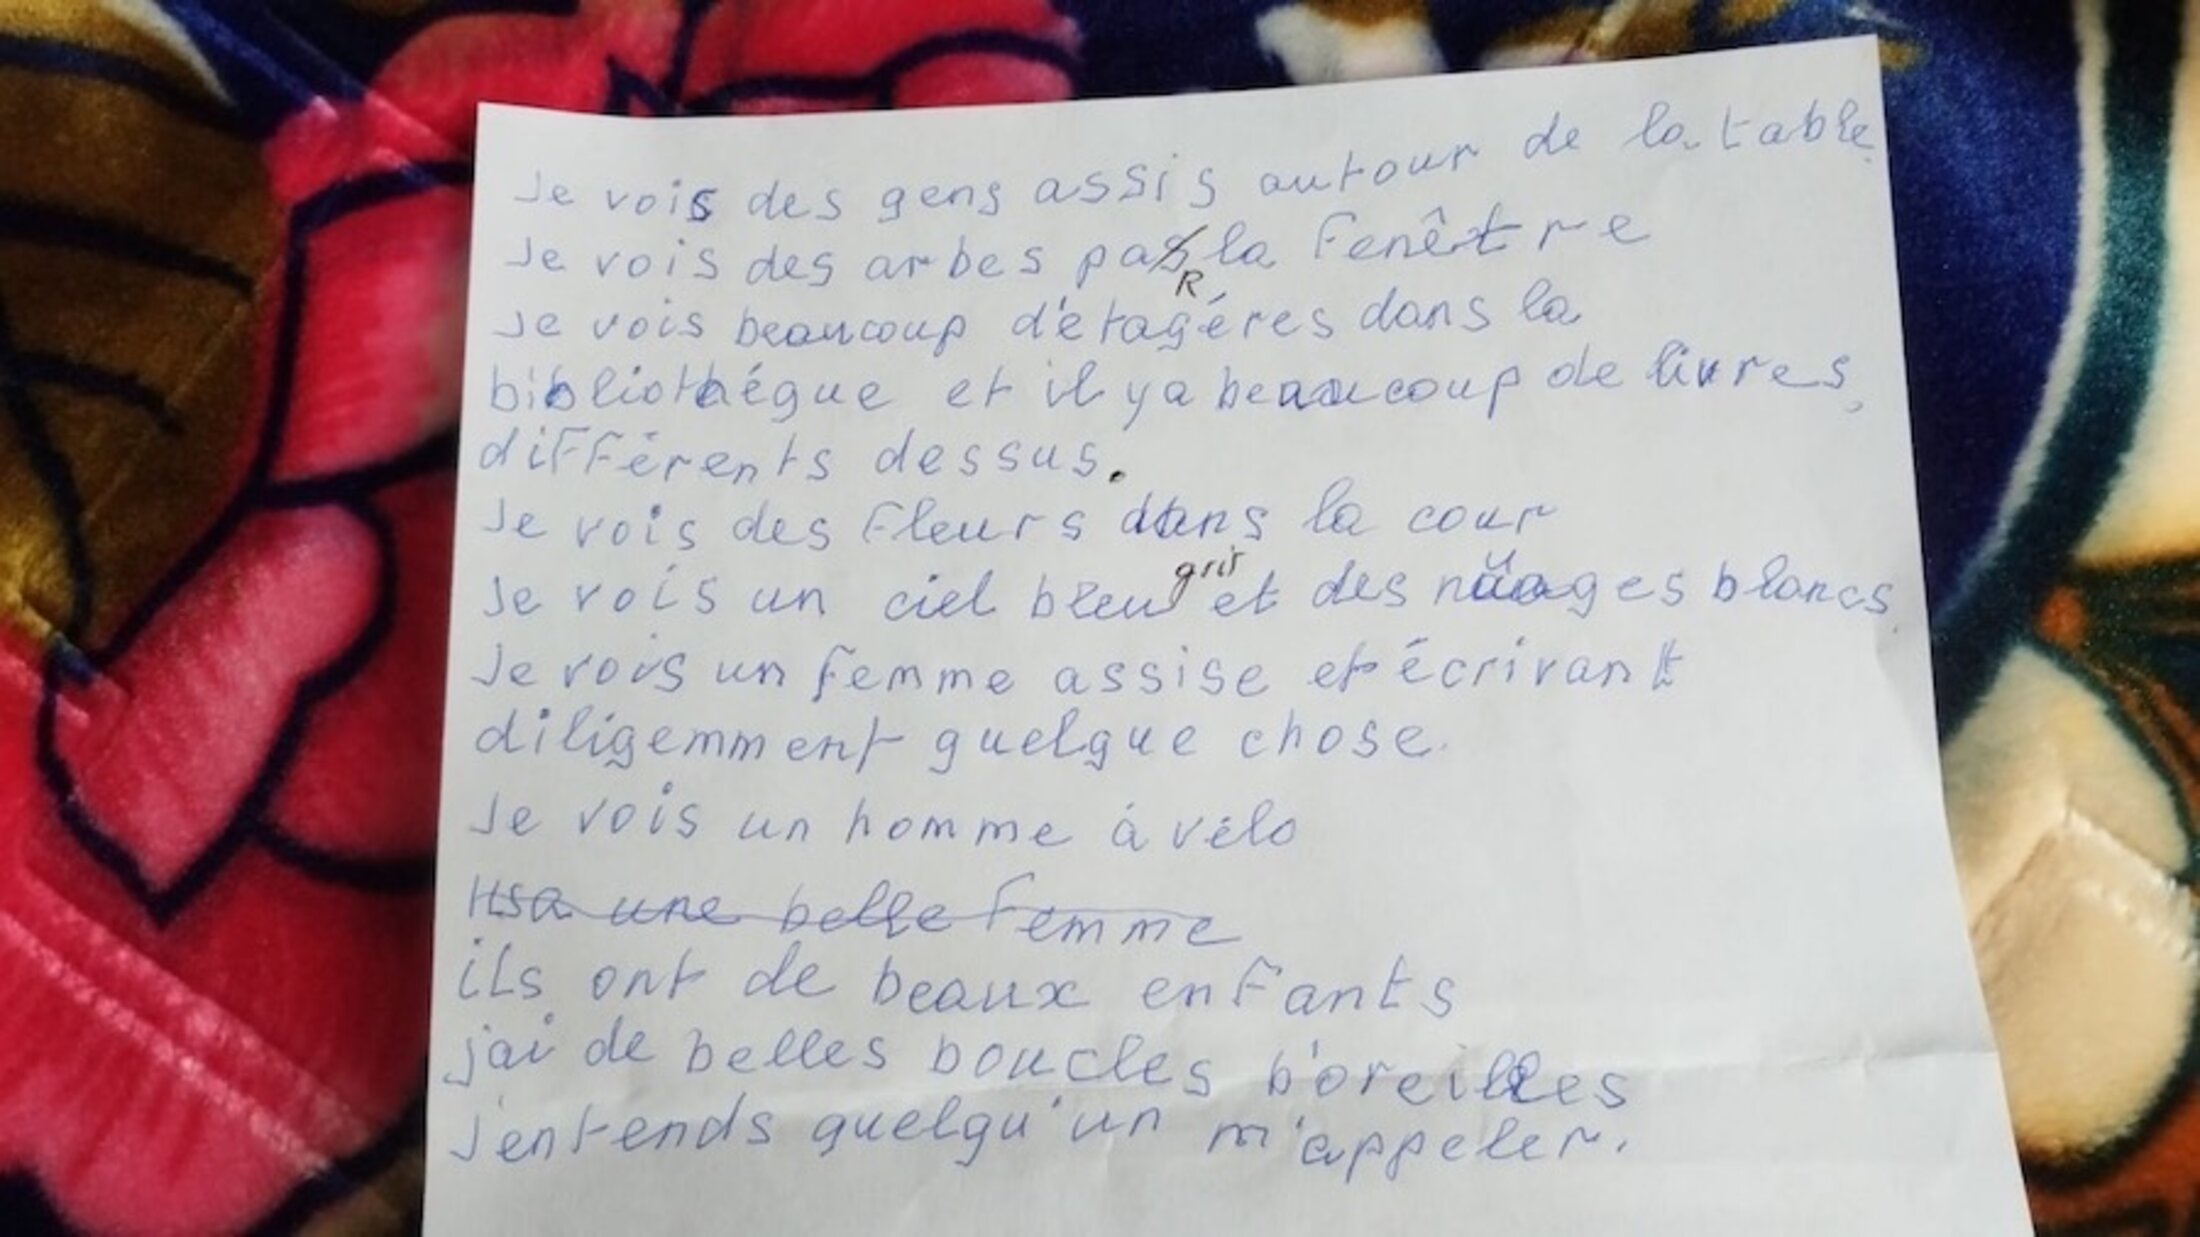 Je vois des gens assis autour de la table.
Je vois des arbes par la fenêtre
Je vois beaucoup d'étagéres dans la
bibliothégue et il y a beaucoup de livres,
différents dessus.
Je vois des fleurs dans la cour
Je vois un ciel bleu gris et des nuages blancs.
Je vois un femme assise et écrivant
diligemment quelque chose.
Je vois un homme à vélo
Il sa une belle femme
ils ont de beaux enfants
j'ai de belles boucles b'oreilles
J'entends quelqu'un m'appeler.